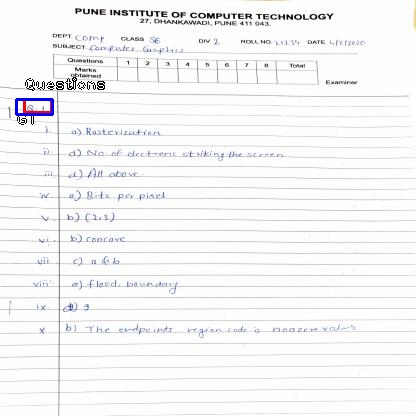 PUNE INSTITUTE OF COMPUTER TECHNOLOGY
27, DHANKAWADI, PUNE 411 043.
DEPT Comp CLASS SE DIV 2 ROLL NO. 21234 DATE 4/2/2020
SUBJECT Computer Graphics
Questions 1 2 3 4 5 6 7 8 Total
Marks obtained
Examiner
Questions
Q.1
Q1
i. a) Rasterization
ii. d) No. of electrons striking the screen
iii. d) All above.
iv. a) Bits per pixel
v. b) (2,3)
vi. b) concave
vii. c) a & b
viii. a) flood, boundary
ix. 9
x b) The endpoints region code is nonzero values